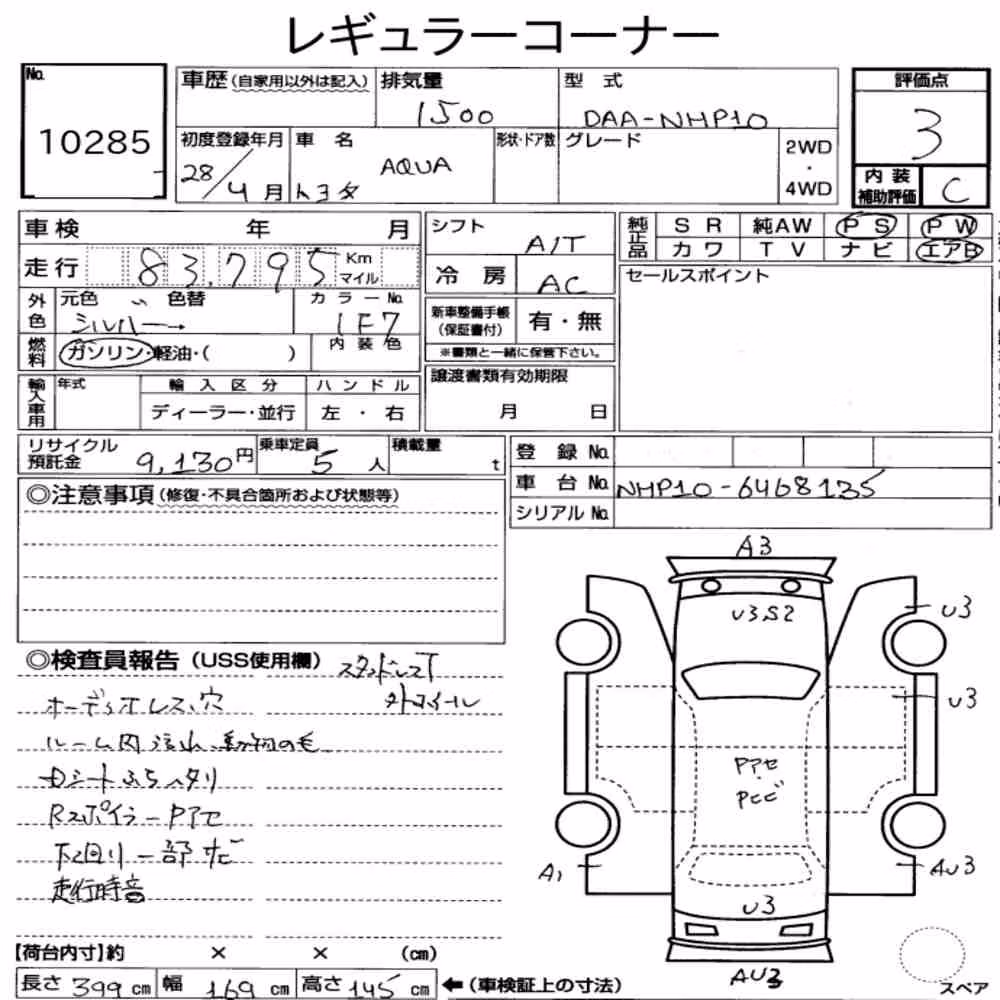 レギュラーコーナー
No. 10285
車歴(自家用以外は記入) 排気量 1500 型式 DAA-NHP10
初度登録年月 28/4月 車名 トヨタ AQUA 形状・ドア数 グレード 2WD・4WD
評価点 3
内装補助評価 C
車検 年 月
走行 83,795 Km マイル
外色 元色 〃 色替 シルバー→ カラーNo. 1F7
燃料 ガソリン・軽油・( ) 内装色
輸入車用 年式 輸入区分 ディーラー・並行 ハンドル 左・右
シフト A/T
冷房 AC
新車整備手帳(保証書付) 有・無
※書類と一緒に保管下さい。
譲渡書類有効期限 月 日
純正品 SR 純AW PS PW
カワ TV ナビ エアB
セールスポイント
リサイクル預託金 9,130円 乗車定員 5人 積載量 t
登録No.
車台No. NHP10-6468135
シリアルNo.
◎注意事項(修復・不具合箇所および状態等)
◎検査員報告(USS使用欄) スタッドレスT
オーディオレス、穴 外アルミホイール
ルーム内汚れ、動物の毛
Rスポイラー Pアセ
下回り一部サビ
走行時音
A3
U3.S2
U3
U3
Pアセ
Pヒビ
A1
AU3
U3
AU3
スペア
【荷台内寸】約 × × (cm)
長さ 399 cm 幅 169 cm 高さ 145 cm ←(車検証上の寸法)